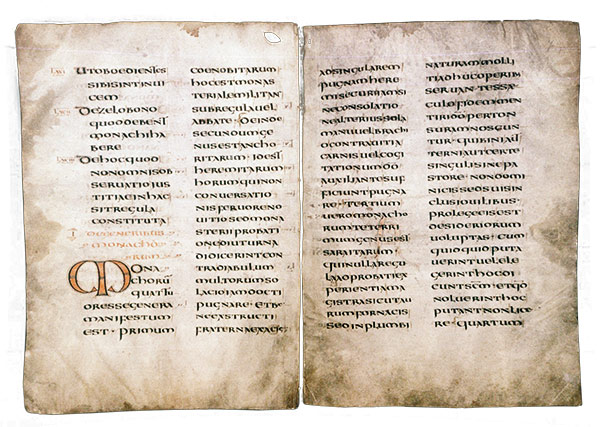 LXXI UT OBOEDIENTES
SIBI SINT INUI
CEM
LXXII DE ZELO BONO
QUOD DEBENT
MONACHI HA
BERE
LXXIII DE HOC QUOD
NON OMNIS OB
SERUATIO IUS
TITIAE IN HAC
SIT REGULA
CONSTITUTA
I DE GENERIBUS
MONACHO
RUM
MONA
CHORŪ
QUATTU
OR ESSE GENERA
MANIFESTUM
EST · PRIMUM
COENOBITARUM
HOC EST MONAS
TERIALE MILITANS
SUB REGULA UEL
ABBATE · DEINDE
SECUNDUM GE
NUS EST ANCHO
RITARUM · ID EST
HEREMITARUM
HORUM QUI NON
CONUERSATIO
NIS FERUORE NO
UITIO SED MONA
STERII PROBATI
ONE DIUTURNA
DIDICERINT CON
TRA DIABULUM
MULTORUM SO
LACIO IAM DOCTI
PUGNARE · ET BE
NE EXSTRUCTI
FRATERNA EX ACIE
AD SINGULAREM
PUGNAM HERE
MI SECURI IAM SI
NE CONSOLATIO
NE ALTERIUS SOLA
MANU UEL BRACHI
O CONTRA UITIA
CARNIS UEL COGI
TATIONUM DŌ
AUXILIANTE SUF
FICIUNT PUGNA
RE · TERTIUM
UERO MONACHO
RUM TETERRI
MUM GENUS EST
SARABAITARUM
QUI NULLA REGU
LA ADPROBATI EX
PERIENTIA MA
GISTRA SICUT AU
RUM FORNACIS
SED IN PLUMBI
NATURAM MOLLI
TI ADHUC OPERIB
SERUANTES SAE
CULO FIDEM MEN
TIRI DŌ PER TON
SURAM NOSCUN
TUR · QUI BINI AUT
TERNI AUT CERTE
SINGULI SINE PA
STORE · NON DOMI
NICIS SED SUIS IN
CLUSI OUILIBUS ·
PRO LEGE EIS EST
DESIDERIORUM
UOLUPTAS · CUM
QUIDQUID PUTA
UERINT UEL ELE
GERINT HOC DI
CUNT SC̄M · ET QD̄
NOLUERINT HOC
PUTANT NON LICE
RE · QUARTUM